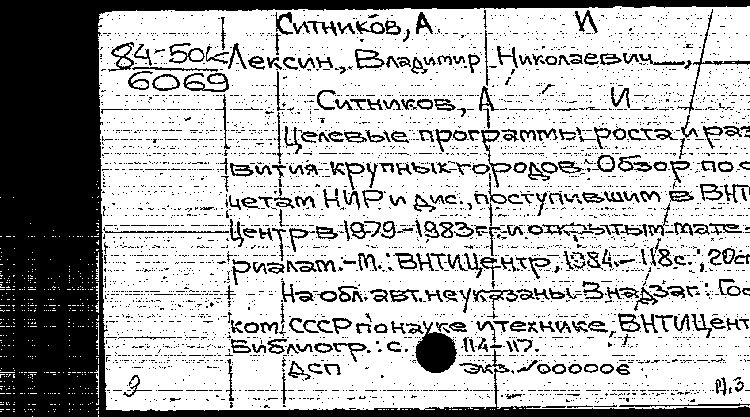 Ситников, А И
84-50к Лексин, Владимир Николаевич,
6069
Ситников, А И
Целевые программы роста и раз
вития крупных городов: Обзор по о
четам НИР и дис., поступившим в ВНТИ
Центр в 1979-1983 гг. и открытым мате-
риалам.-М.: ВНТИЦентр, 1984.- 118 с.; 20 см
На обл. авт. не указаны. В надзаг: Гос
ком. СССР по науке и технике, ВНТИЦент
Библиогр.: с. 114-117.
ДСП экз. 000006